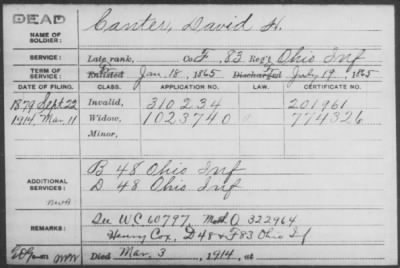 DEAD
NAME OF SOLDIER:
Canter, David H.
SERVICE:
Late rank, Co F, 83 Reg't Ohio Inf
TERM OF SERVICE:
Enlisted Jan. 18, 1865 Discharged July 19, 1865
DATE OF FILING. CLASS. APPLICATION NO. LAW. CERTIFICATE NO.
1879 Sept 22 Invalid, 310234 201961
1914, Mar. 11 Widow, 1023740 774326
Minor,
ADDITIONAL SERVICES:
B 48 Ohio Inf
D 48 Ohio Inf
REMARKS:
See WC 60797, O 322964
Henry Cox, D 48 & F 83 Ohio Inf
Died Mar. 3, 1914, at